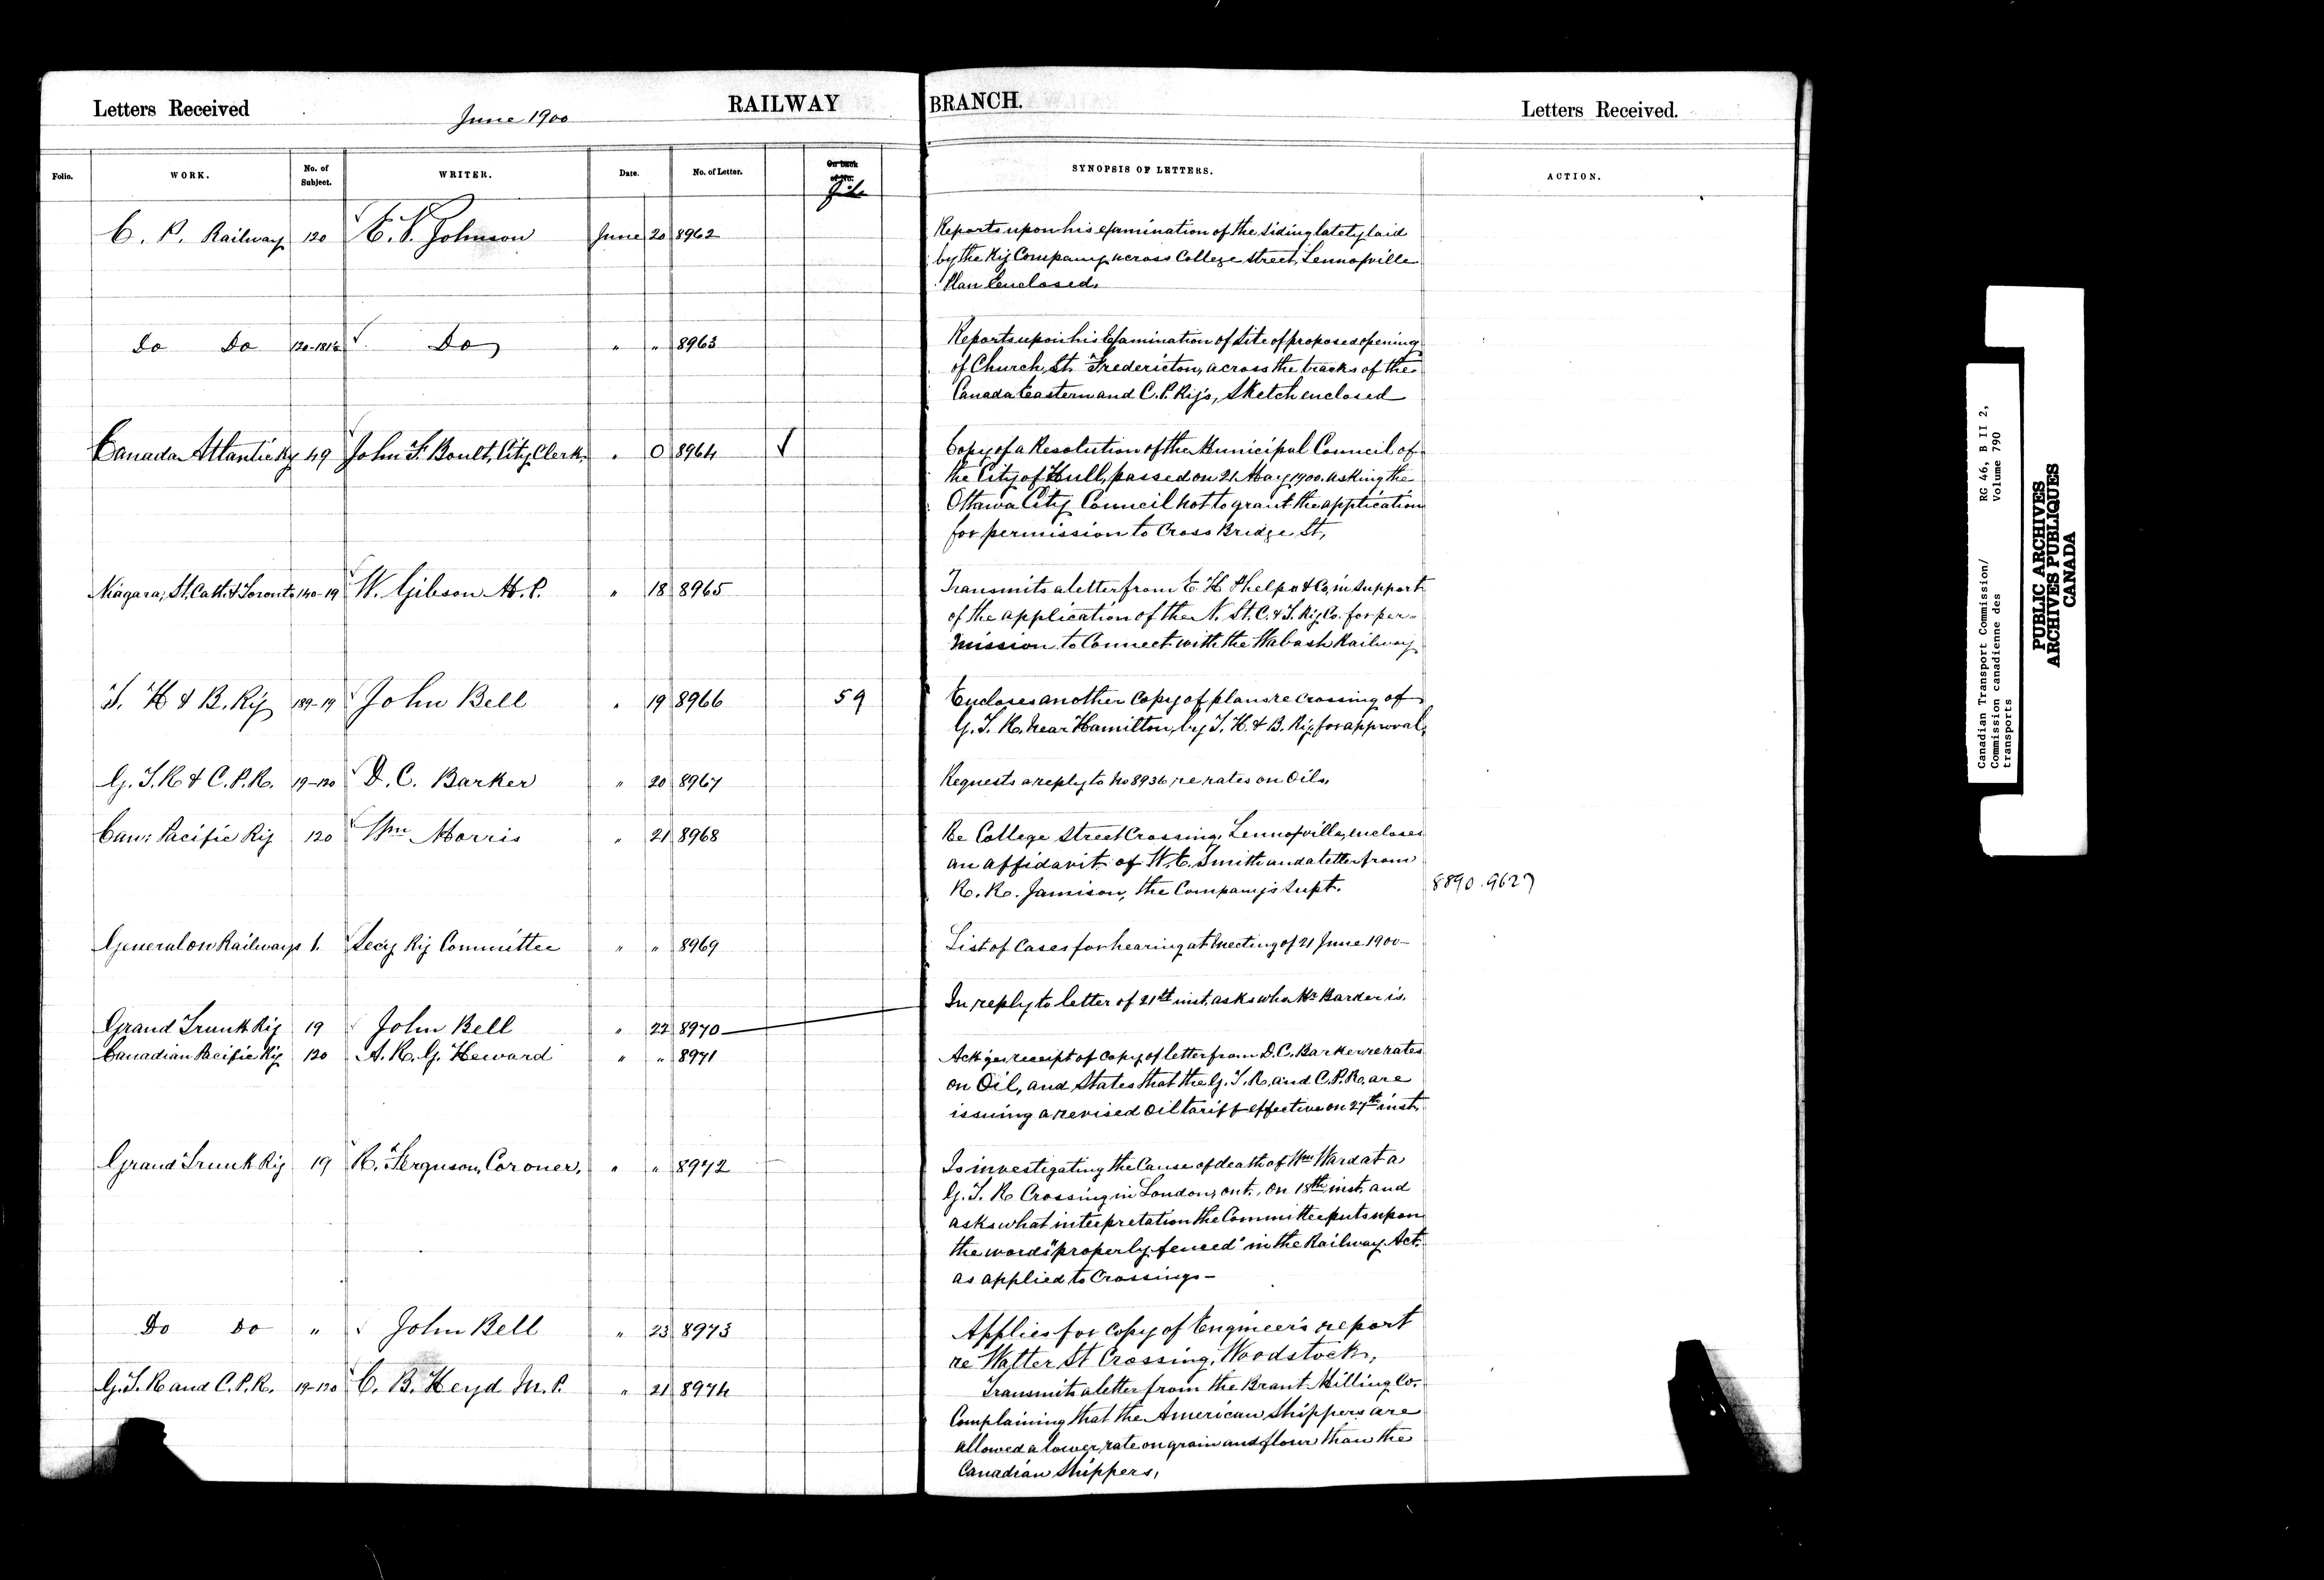 Letters Received
June 1900
RAILWAY BRANCH.
Letters Received.
Folio. WORK. No. of Subject. WRITER. Date. No. of Letter. On back of No. File SYNOPSIS OF LETTERS. ACTION.
C. P. Railway 120 Johnson June 20 8962 Reports upon his examination of the siding lately laid
by the Ry Company across College Street, Lennoxville
Plan Enclosed.
Do Do Do " " 8963 Reports upon his Examination of site of proposed opening
of Church St. Fredericton, across the tracks of the
Canada Eastern and C.P. Ry's, Sketch enclosed
Canada Atlantic Ry 49 John F. Boult, City Clerk. " 0 8964 √ Copy of a Resolution of the Municipal Council of
the City of Hull, passed on 21 May 1900. asking the
Ottawa City Council not to grant the application
for permission to Cross Bridge St,
Niagara, St. Cath. & Toronto 140-19 W. Gibson M.P. " 18 8965 Transmits a letter from E. H Phelps & Co, in support
of the application of the N. St. C. & T. Ry Co. for per-
mission to Connect with the Wabash Railway
T. H & B. Ry 189-19 John Bell " 19 8966 59 Encloses another Copy of plans re crossing of
G. T. R. near Hamilton, by T. H. & B. Ry, for approval,
G. T. R & C. P. R. 19-120 D. C. Barker " 20 8967 Requests a reply to No 8936 re rates on Oils,
Can: Pacific Ry 120 Wm Morris " 21 8968 Re College Street Crossing, Lennoxville, encloses
an affidavit of W. E. Smith and a letter from
R. R. Jamison, the Company's Supt. 8890. 9627
General on Railways 1. Secy Ry Committee " " 8969 List of Cases for hearing at meeting of 21 June 1900-
In reply to letter of 21st inst, asks who Mr Barker is.
Grand Trunk Ry 19 John Bell " 22 8970
Canadian Pacific Ry 120 A. R. G. Heward " " 8971 Ack'ges receipt of copy of letter from D. C. Barker re rates
on Oil, and States that the G. T. R. and C. P. R. are
issuing a revised oil tariff effective on 27th inst.
Grand Trunk Ry 19 R. Ferguson, Coroner, " " 8972 Is investigating the Cause of death of Wm Ward at a
G. T. R Crossing in London, Ont., on 18th inst, and
asks what interpretation the Committee puts upon
the words "properly fenced" in the Railway Act.
as applied to Crossings-
Do Do " John Bell " 23 8973 Applies for copy of Engineer's report
re Walter St Crossing, Woodstock,
G. T. R and C. P. R. 19-120 C. B. Heyd M.P. " 21 8974 Transmits a letter from the Brant Milling Co.
Complaining that the American Shippers are
allowed a lower rate on grain and flour than the
Canadian Shippers,
Canadian Transport Commission/ RG 46, B II 2,
Commission canadienne des Volume 790
transports
PUBLIC ARCHIVES
ARCHIVES PUBLIQUES
CANADA